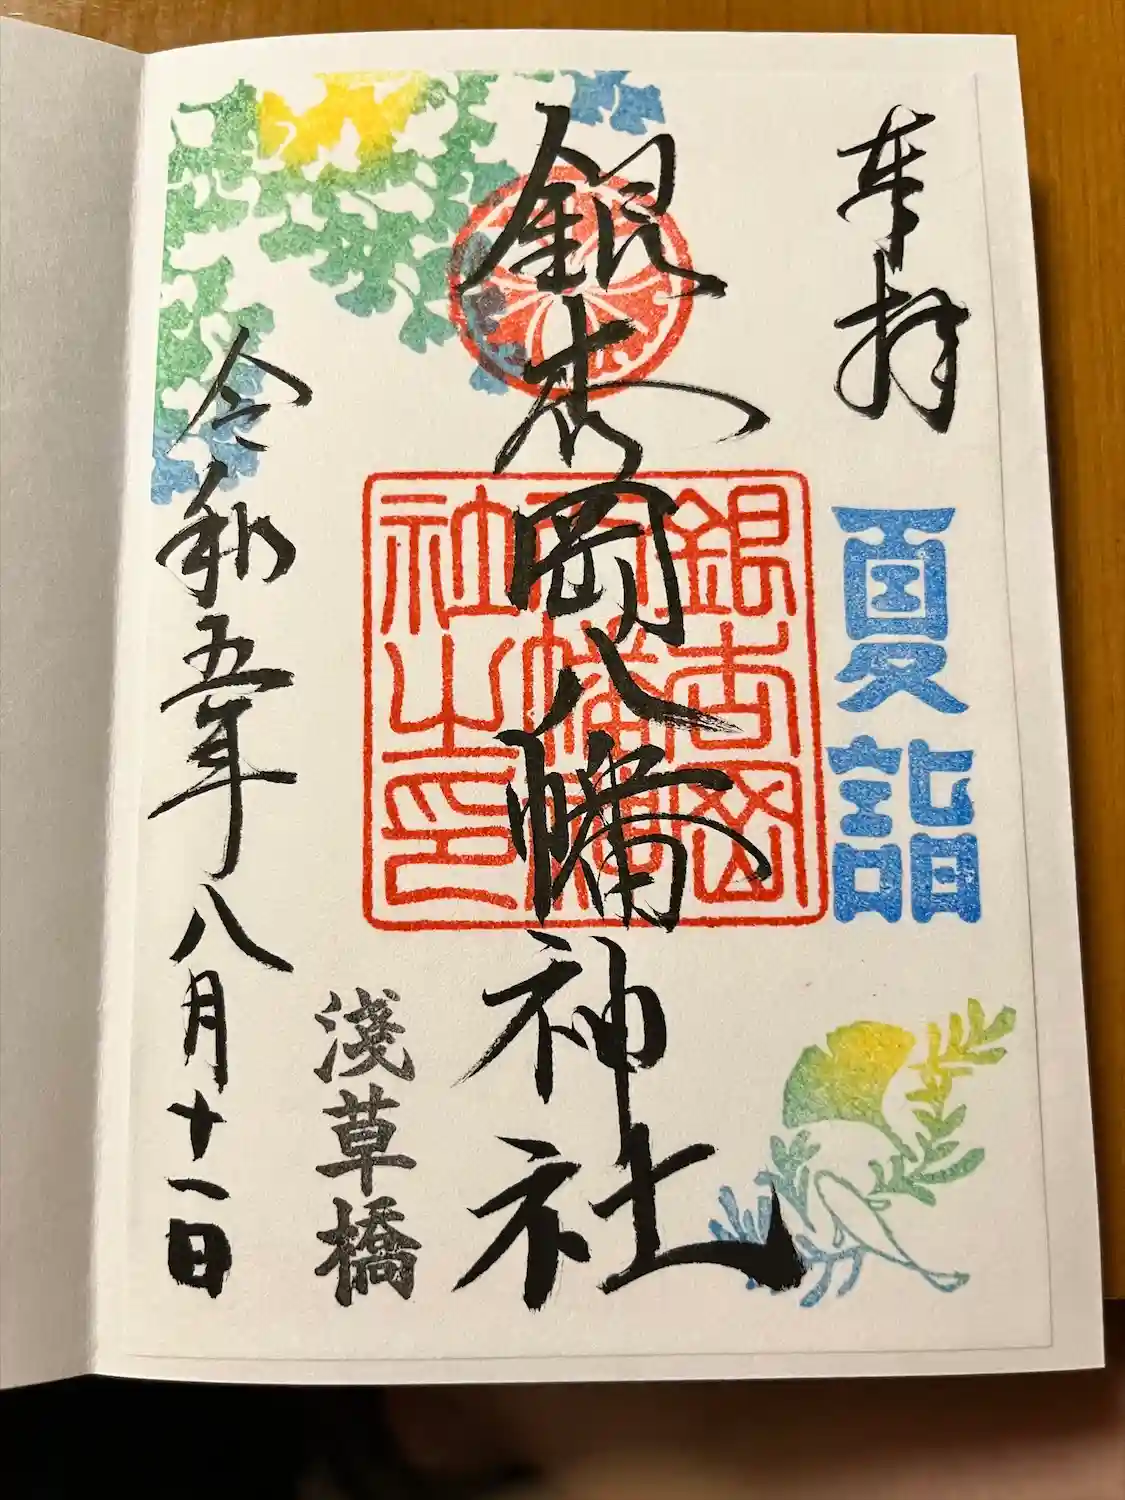 奉拝
夏詣
銀杏岡八幡神社
銀杏岡
八幡神
社之印
淺草橋
令和五年八月十一日